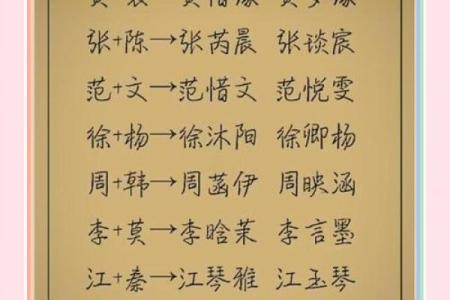 张+陈→张芮晨 张琰宸
范+文→范惜文 范悦雯
徐+杨→徐沐阳 徐卿杨
周+韩→周菡伊 周映涵
李+莫→李晗茉 李言墨
江+秦→江琴雅 江玉琴